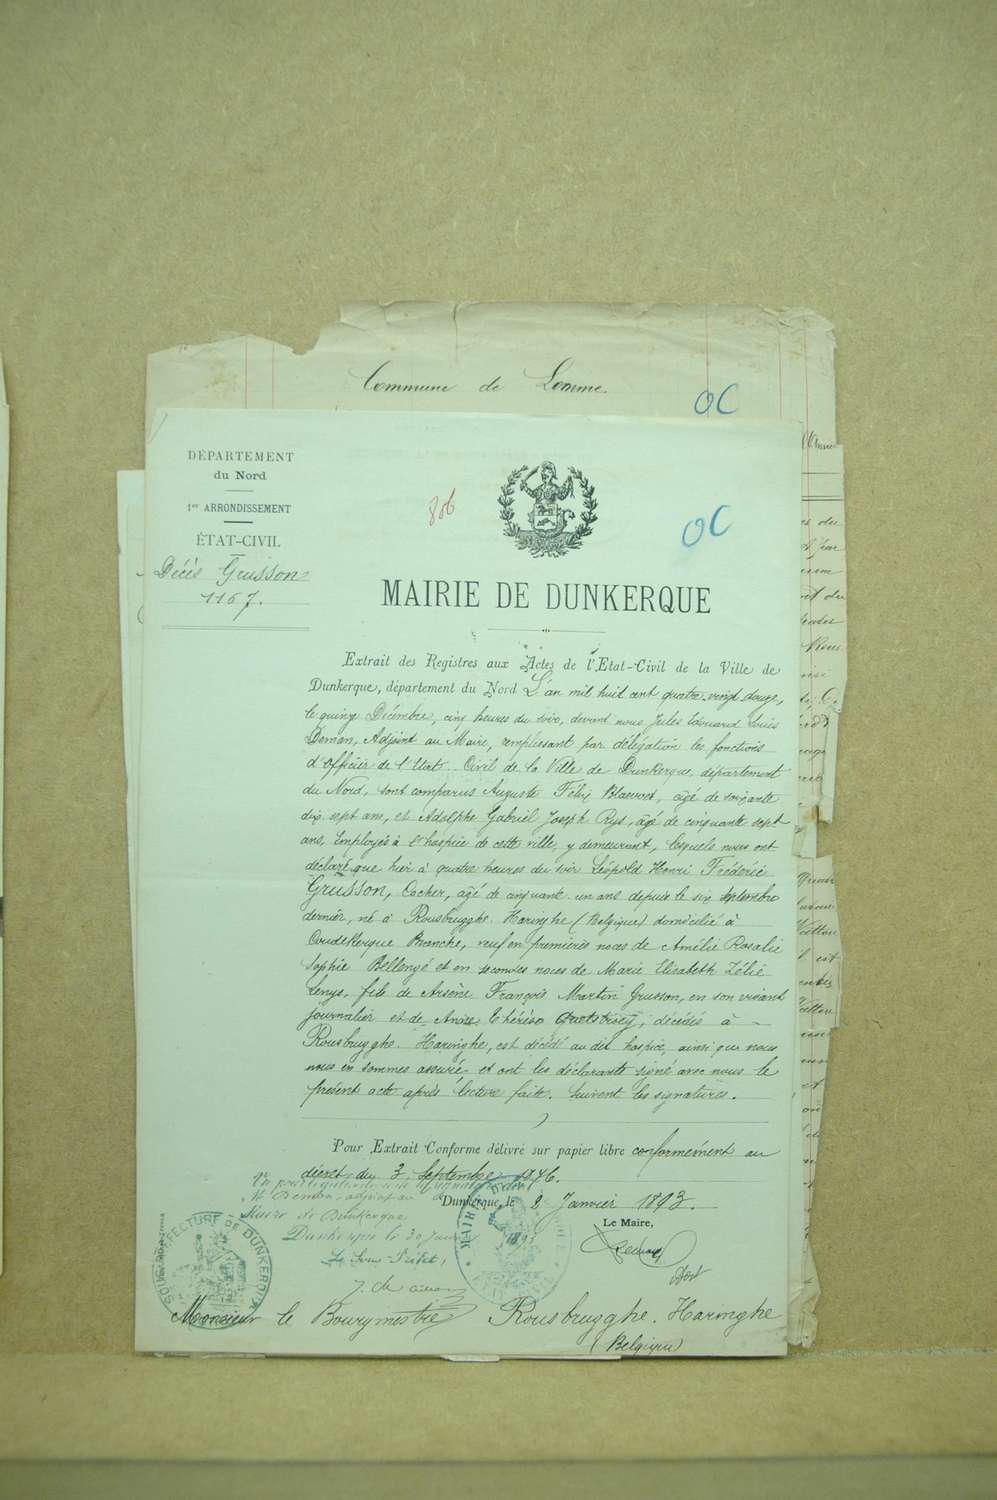 Commune de Lomme.
OC
DÉPARTEMENT
du Nord
1er ARRONDISSEMENT
ÉTAT-CIVIL
Décès Grusson
1167.
806
OC
MAIRIE DE DUNKERQUE
Extrait des Registres aux Actes de l'Etat-Civil de la Ville de
Dunkerque, département du Nord L'an mil huit cent quatre-vingt douze,
le quinze Décembre, cinq heures du soir, devant nous Jules Edouard Louis
Deman, Adjoint au Maire, remplissant par délégation les fonctions
d'Officier de l'Etat-Civil de la Ville de Dunkerque, département
du Nord, sont comparus Auguste Félix Blaevoet, âgé de soixante
dix sept ans, et Adolphe Gabriel Joseph Rys, âgé de cinquante sept
ans, Employés à l'hospice de cette ville, y demeurant, lesquels nous ont
déclaré que hier à quatre heures du soir Léopold Henri Frédéric
Grusson, Cocher, âgé de cinquante un ans depuis le six septembre
dernier, né à Rousbrugghe-Haringhe (Belgique) domicilié à
Coudekerque Branche, veuf en premières noces de Amélie Rosalie
Sophie Bellengé et en secondes noces de Marie Elisabeth Zélie
Lenys, fils de Arsène François Martin Grusson, en son vivant
journalier et de Anne Thérèse décédés à
Rousbrugghe-Haringhe, est décédé au dit hospice, ainsi que nous
nous en sommes assuré, et ont les déclarants signé avec nous le
présent acte après lecture faite. Suivent les signatures.
Pour Extrait Conforme délivré sur papier libre conformément au
décret du 3 Septembre 1876.
Dunkerque, le 2 Janvier 1893.
adjoint au
Maire de Dunkerque
Dunkerque le 20 Janvier 1893
Le Sous-Préfet,
Le Maire,
SOUS-PRÉFECTURE DE DUNKERQUE
Monsieur le Bourgmestre Rousbrugghe-Haringhe
(Belgique)